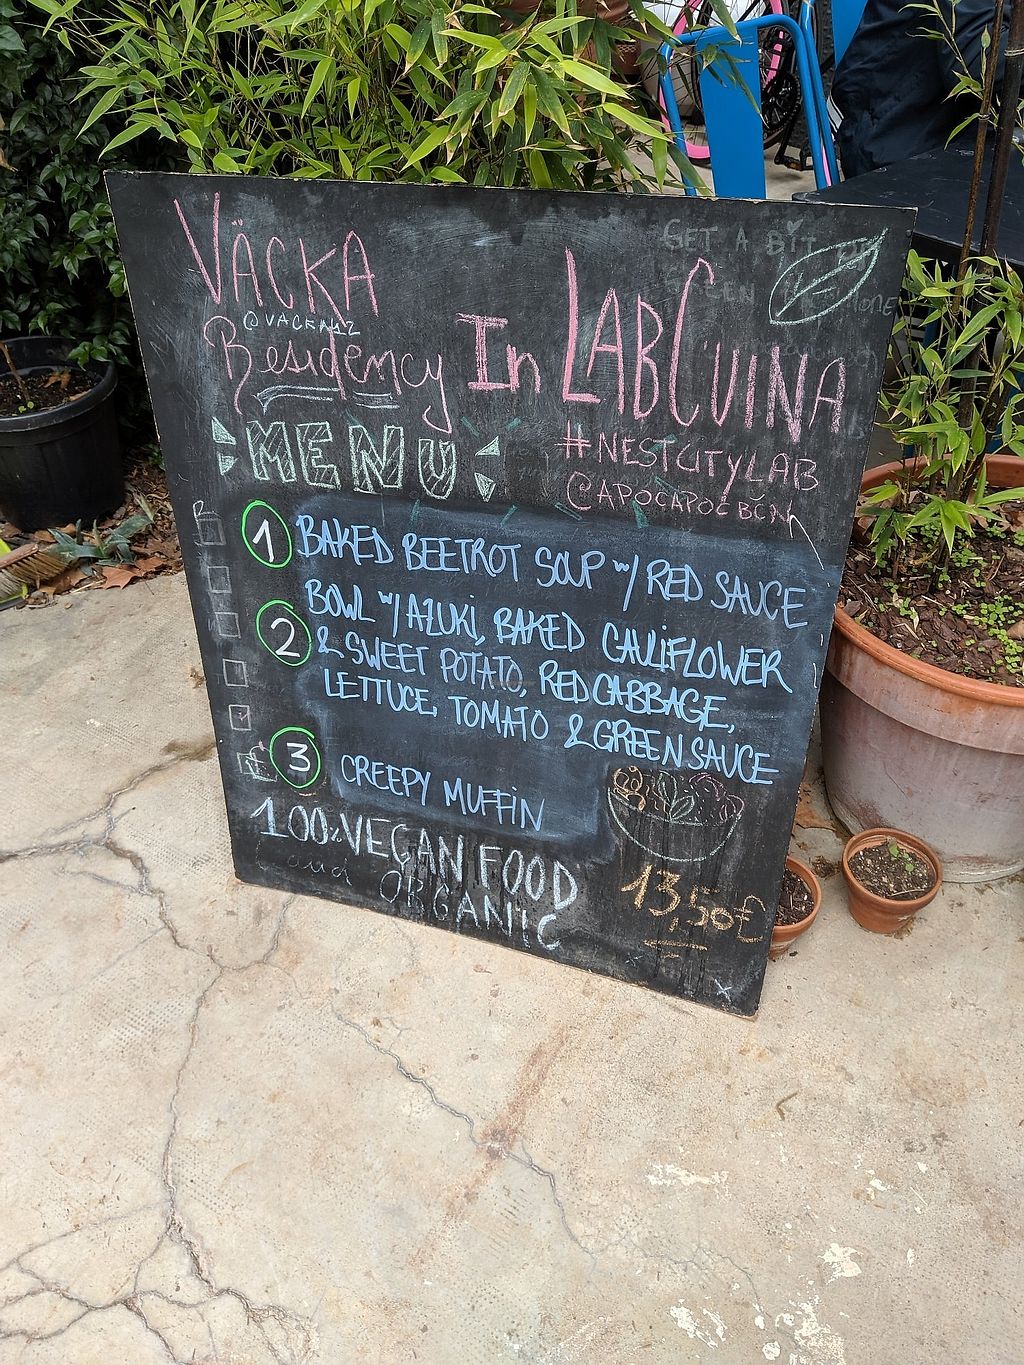 VÄCKA
Residency In LABCUINA
MENU
#NESTCITYLAB
@APOCAPOCBCN
1 BAKED BEETROT SOUP w/ RED SAUCE
2 BOWL w/ AZUKI, BAKED CAULIFLOWER
& SWEET POTATO, RED CABBAGE,
LETTUCE, TOMATO & GREEN SAUCE
3 CREEPY MUFFIN
100% VEGAN FOOD
and ORGANIC
13,50€
GET A BIT